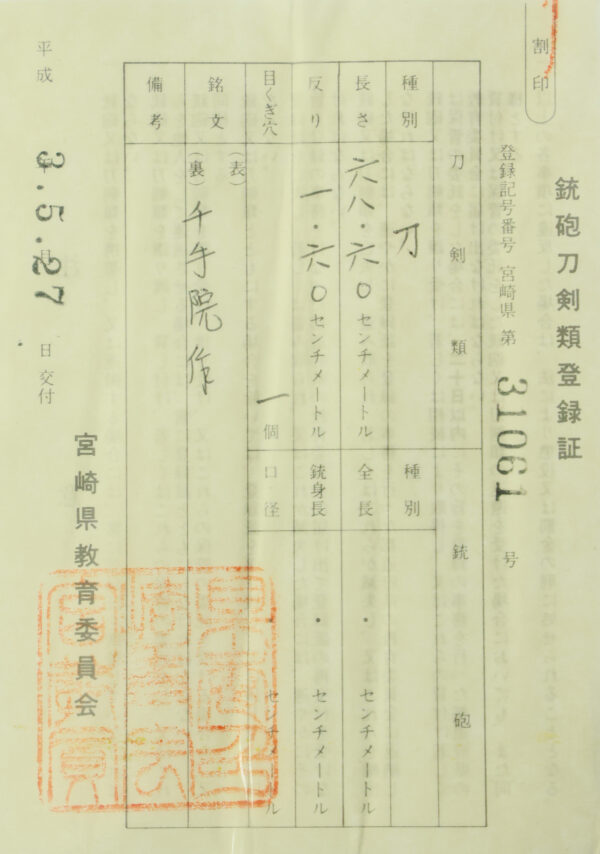 割印
銃砲刀剣類登録証
登録記号番号 宮崎県 第 31061 号
刀剣類
種別 刀
長さ 六八・六〇センチメートル
反り 一・六〇センチメートル
目くぎ穴 一個
銘文
(表)
(裏) 千手院作
備考
銃砲
種別
全長 ・ センチメートル
銃身長 ・ センチメートル
口径 ・ センチメートル
平成 3.5.27 日交付
宮崎県教育委員会